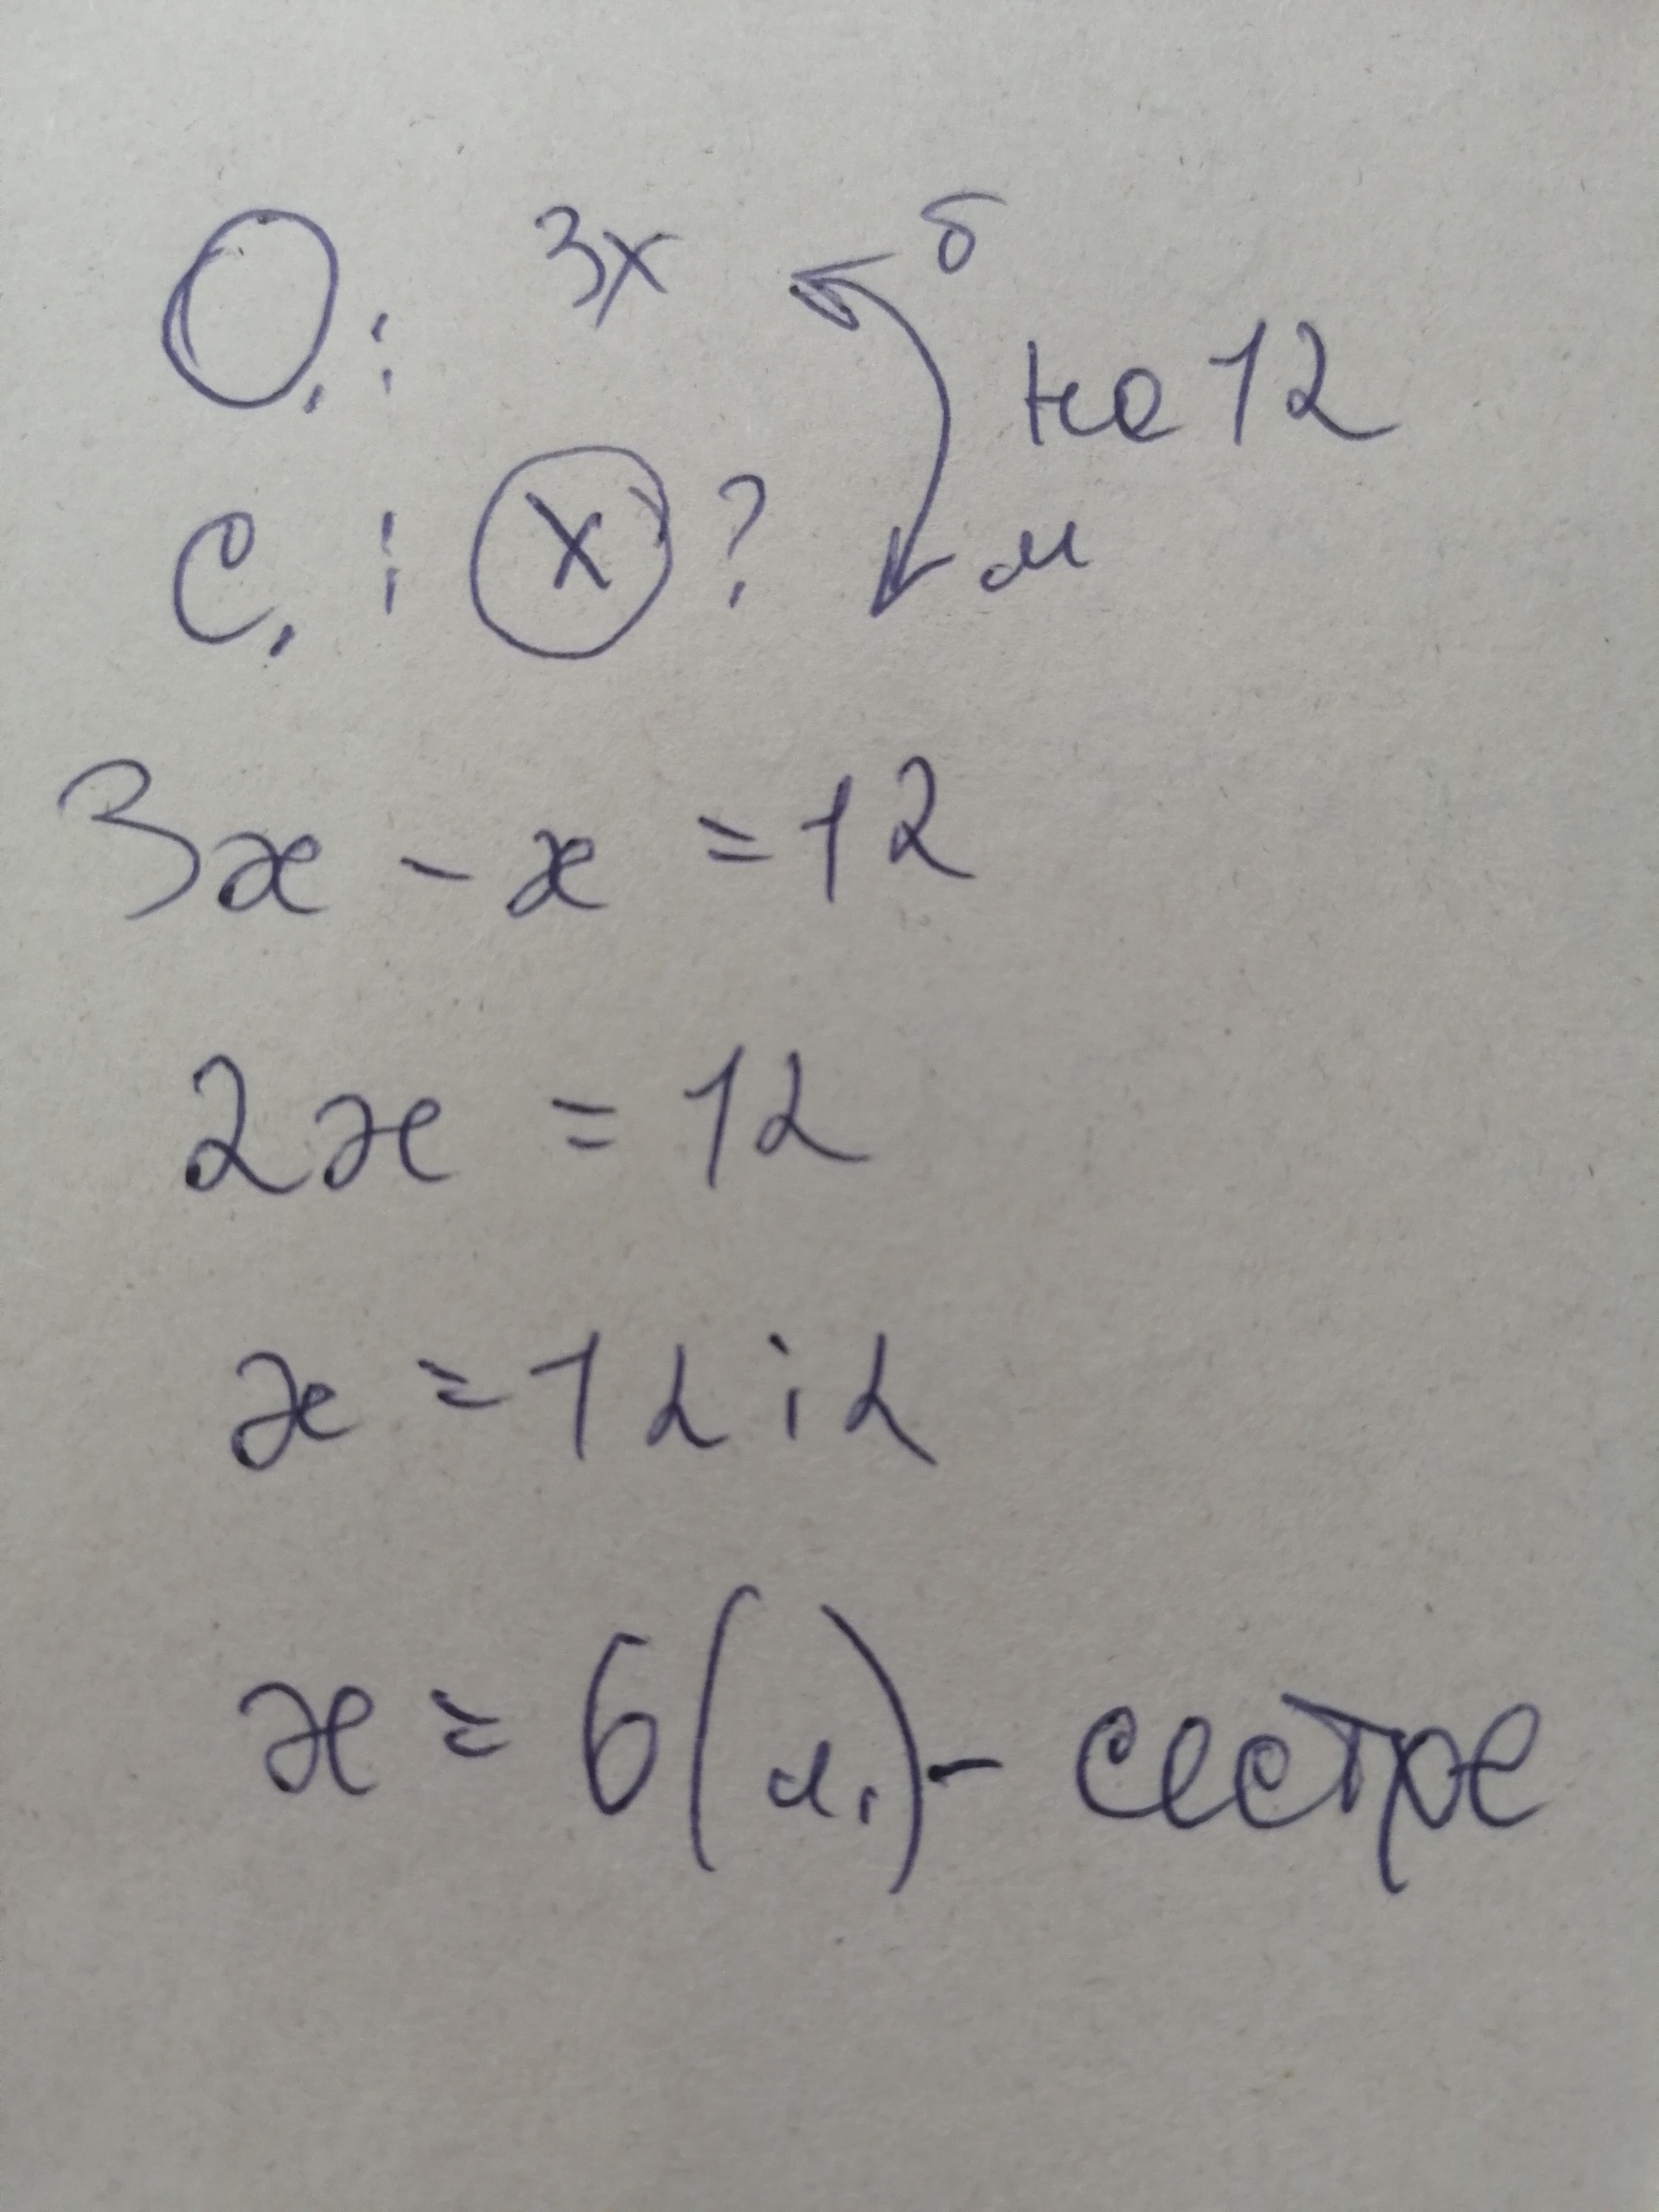 О.: 3x б
на 12
С.: x ? м
3x - x = 12
2x = 12
x = 12 : 2
x = 6 (л.) - сестре